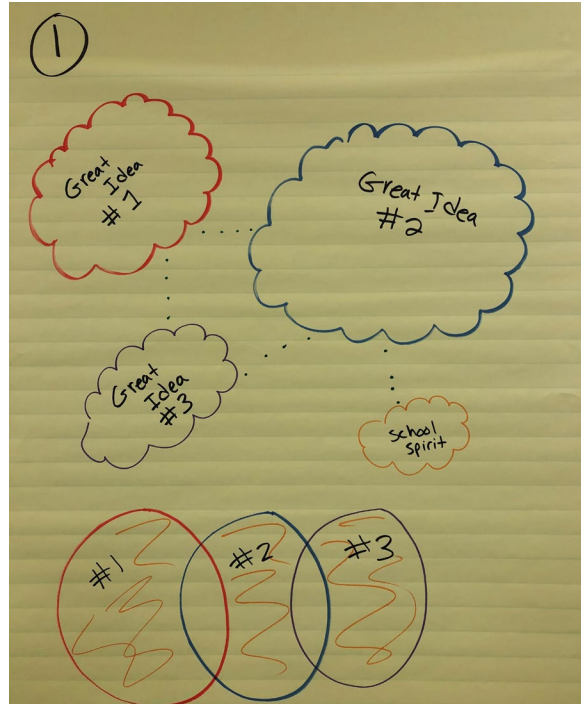 1
Great
Idea
#1
Great Idea
#2
Great
Idea
#3
school
spirit
#1
#2
#3